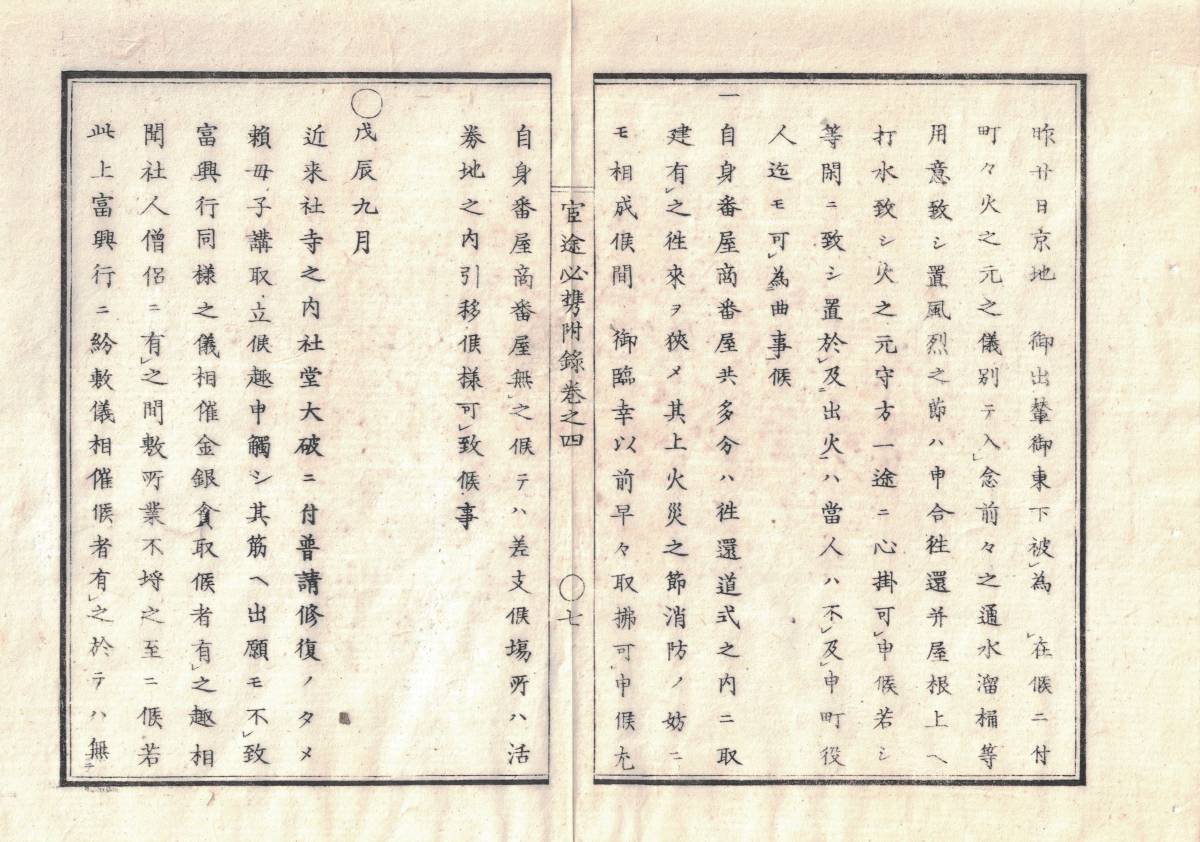 昨廿日京地　御出輦御東下被為　在候ニ付
町々火之元之儀別テ入念前々之通水溜桶等
用意致シ置風烈之節ハ申合徃還并屋根上ヘ
打水致シ火之元守方一途ニ心掛可申候若シ
等閑ニ致シ置於及出火ハ當人ハ不及申町役
人迄モ可為曲事候
一
自身番屋商番屋共多分ハ徃還道式之内ニ取
建有之徃來ヲ狹メ其上火災之節消防ノ妨ニ
モ相成候間　御臨幸以前早々取拂可申候尤
宦途必携附錄卷之四　〇七
自身番屋商番屋無之候テハ差支候塲所ハ活
券地之内引移候様可致候事
〇戊辰九月
近来社寺之内社堂大破ニ付普請修復ノタメ
賴母子講取立候趣申觸シ其筋ヘ出願モ不致
富興行同様之儀相催金銀貪取候者有之趣相
聞社人僧侶ニ有之間敷所業不埒之至ニ候若
此上富興行ニ紛敷儀相催候者有之於テハ無